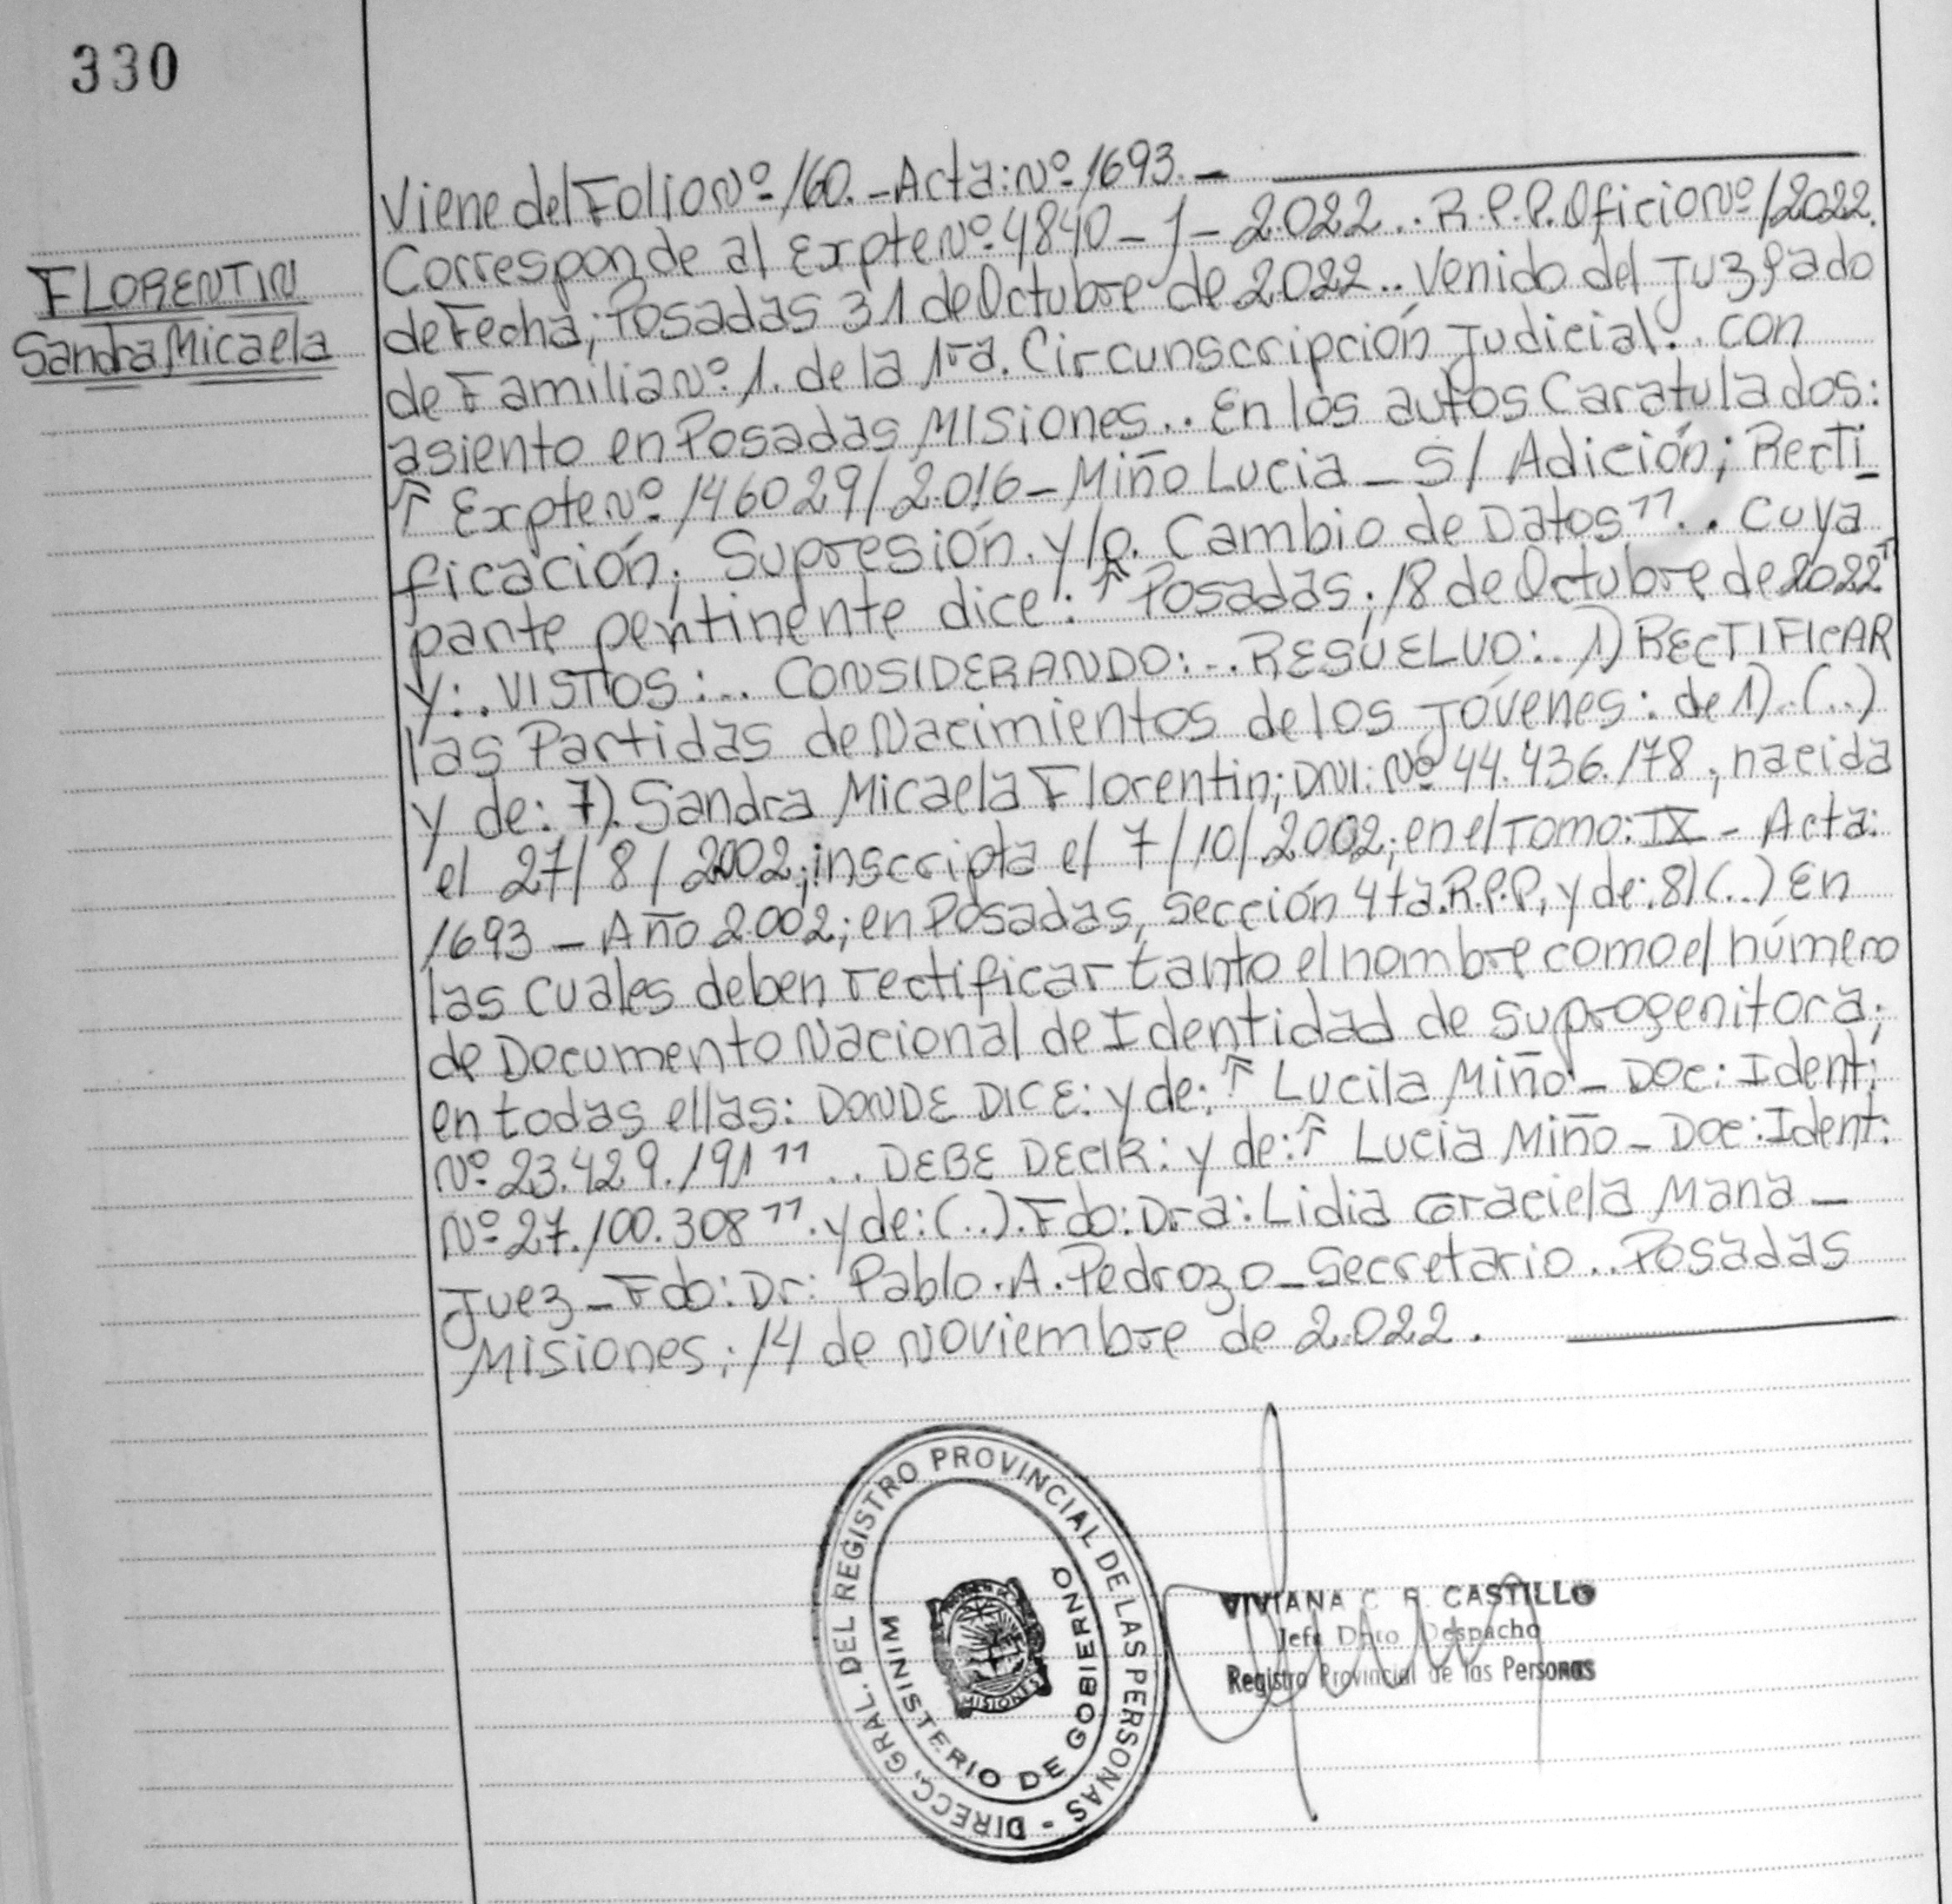 330
FLORENTIN
Sandra Micaela
Viene del Folio Nº 160. - Acta: Nº 1693. -
Corresponde al Expte Nº 4840 - 1 - 2022.. R.P.P. Oficio Nº /2022.
de Fecha; Posadas 31 de Octubre de 2022.. Venido del Juzgado
de Familia Nº 1. de la 1ra. Circunscripción Judicial.. con
asiento en Posadas Misiones.. En los autos Caratulados:
" Expte Nº 146029/2016 - Miño Lucia - S/ Adición; Recti_
ficación; Supresión. y/o. Cambio de Datos".. Cuya
parte pertinente dice: " Posadas; 18 de Octubre de 2022"
Y:. VISTOS:.. CONSIDERANDO:.. RESUELVO:. 1) RECTIFICAR
las Partidas de Nacimientos de los Jóvenes: de 1).(..)
y de: 7). Sandra Micaela Florentin; DNI: Nº 44.436.178, nacida
el 27/8/2002; inscripta el 7/10/2002; en el Tomo: IX - Acta:
1693 - Año 2002; en Posadas, Sección 4ta. R.P.P, y de: 8) (..) En
las cuales deben rectificar tanto el nombre como el número
de Documento Nacional de Identidad de su progenitora;
en todas ellas: DONDE DICE: y de: " Lucila Miño - Doc: Ident:
Nº 23.429.191".. DEBE DECIR: y de: " Lucia Miño - Doc: Ident:
Nº 27.100.308". y de: (..). Fdo: Dra: Lidia Graciela Mana -
Juez - Fdo: Dr: Pablo. A. Pedrozo - Secretario.. Posadas
Misiones; 14 de Noviembre de 2022.
DIRECC. GRAL. DEL REGISTRO PROVINCIAL DE LAS PERSONAS -
MINISTERIO DE GOBIERNO
MISIONES
VIVIANA C. R. CASTILLO
Jefa Dpto Despacho
Registro Provincial de las Personas